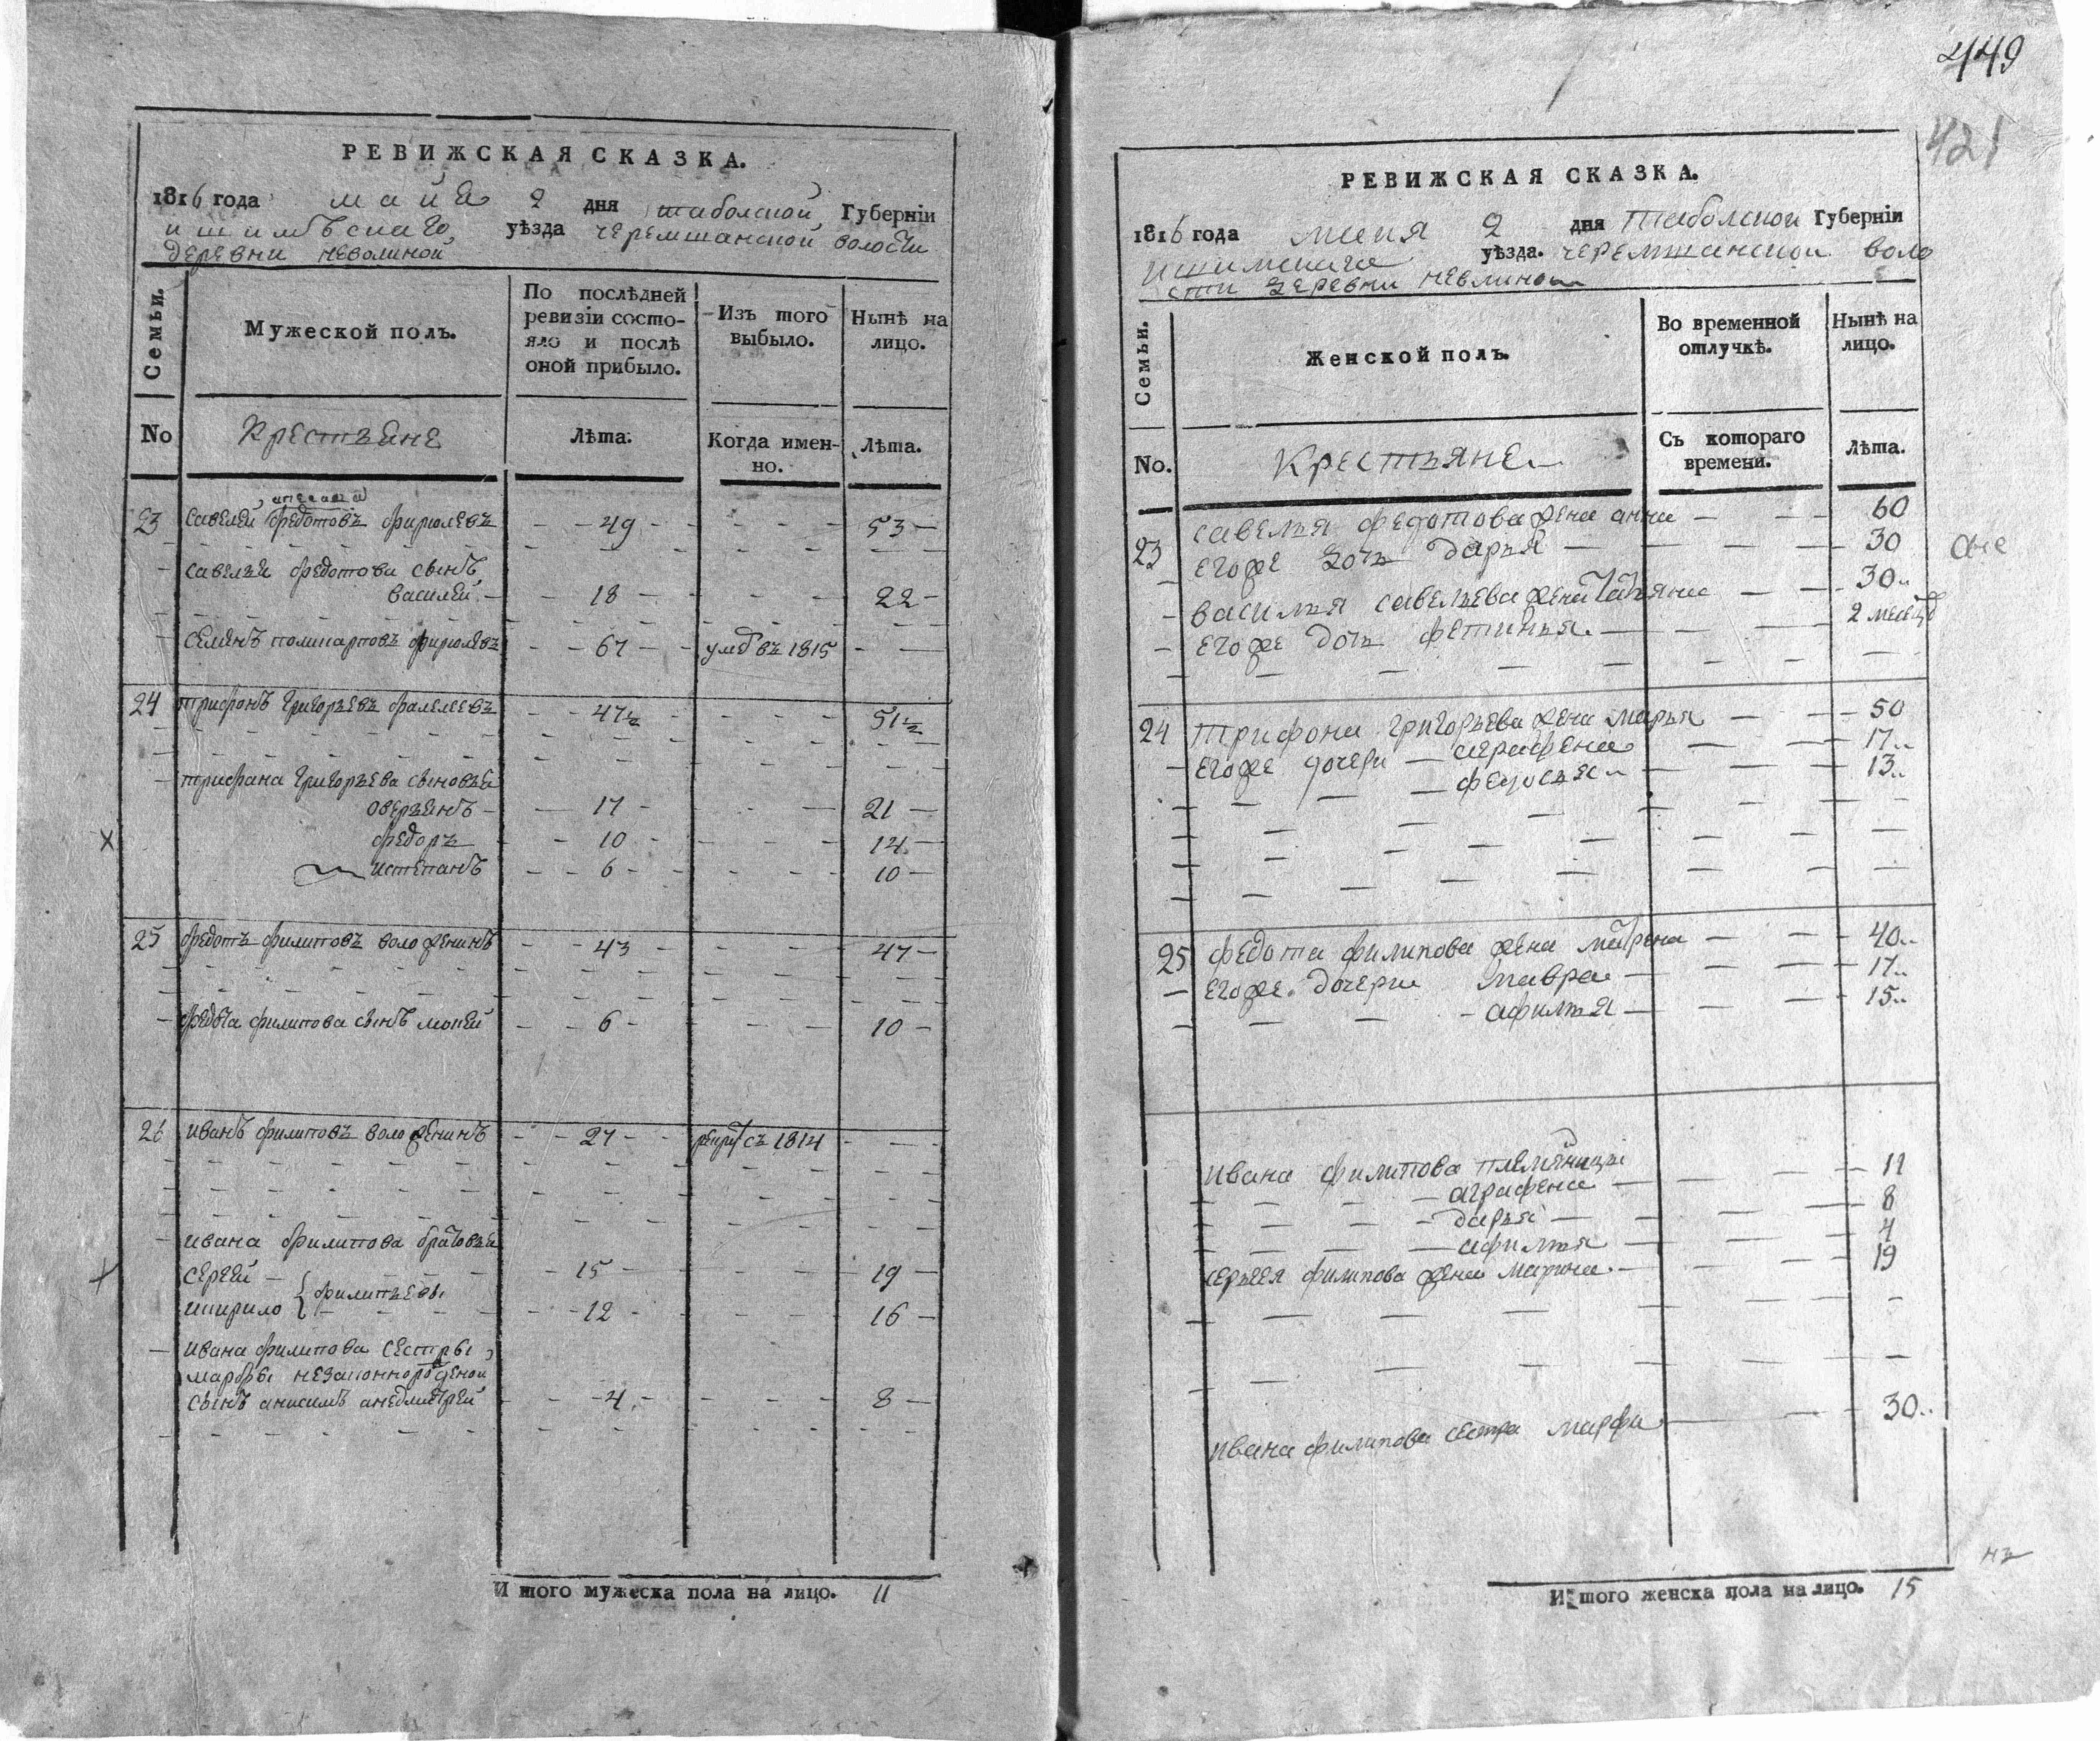 РЕВИЖСКАЯ СКАЗКА.
1816 года майя 2 дня таболской Губерніи
ишимъскаго уѣзда черемшанской волости
деревни неволиной
Семьи.
Мужеской полъ.
По послѣдней ревизіи состояло и послѣ оной прибыло.
Изъ того выбыло.
Нынѣ на лицо.
No
Крестьяне
Лѣта.
Когда именно.
Лѣта.
23 савелей федотовъ фирюлевъ - - 49 - - - - 53 -
савелья федотова сынъ
василей - - 18 - - - - 22 -
семенъ поликарповъ фирюлевъ - - 67 - - умеръ 1815 - -
24 трифонъ григорьевъ фалелеевъ - - 47½ - - - - 51½
трифана григорьева сыновья
аверьянъ - - 17 - - - - 21 -
федоръ - - 10 - - - - 14 -
истепанъ - - 6 - - - - 10 -
25 федотъ филиповъ воложенинъ - - 43 - - - 47 -
федота филипова сынъ мокей - - 6 - - - - 10 -
26 иванъ филиповъ воложенинъ - - 27 - - съ 1814 - -
ивана филипова братовья
сергей - 15 - - - - 19 -
икирило { филипьевы - 12 - - - - 16 -
ивана филипова сестры
марфы незаконнорожденой
сынъ анисимъ - - 4 - - - - 8 -
И того мужеска пола на лицо. 11
449
421
РЕВИЖСКАЯ СКАЗКА.
1816 года маия 2 дня таболской Губерніи
ишимскаго уѣзда. черемшанской воло
сти деревни неволиной
Семьи.
Женской полъ.
Во временной отлучкѣ.
Нынѣ на лицо.
No.
Крестьяне
Съ котораго времени.
Лѣта.
23 савелья федотова жена анна - - - 60
егоже дочь дарья - - - 30
василья савельева жена татьяна - - - 30
егоже дочь фетинья - - - 2 месяца
24 трифона григорьева жена марья - - - 50
егоже дочери - аграфена - - - 17
- федосья - - - 13
25 федота филипова жена матрена - - - 40
егоже дочери мавра - - - 17
- афимья - - - 15
ивана филипова племянницы
- аграфена - - - 11
- дарья - - - 8
- афимья - - - 4
сергея филипова жена марина - - - 19
ивана филипова сестра марфа - - - 30
И того женска пола на лицо. 15